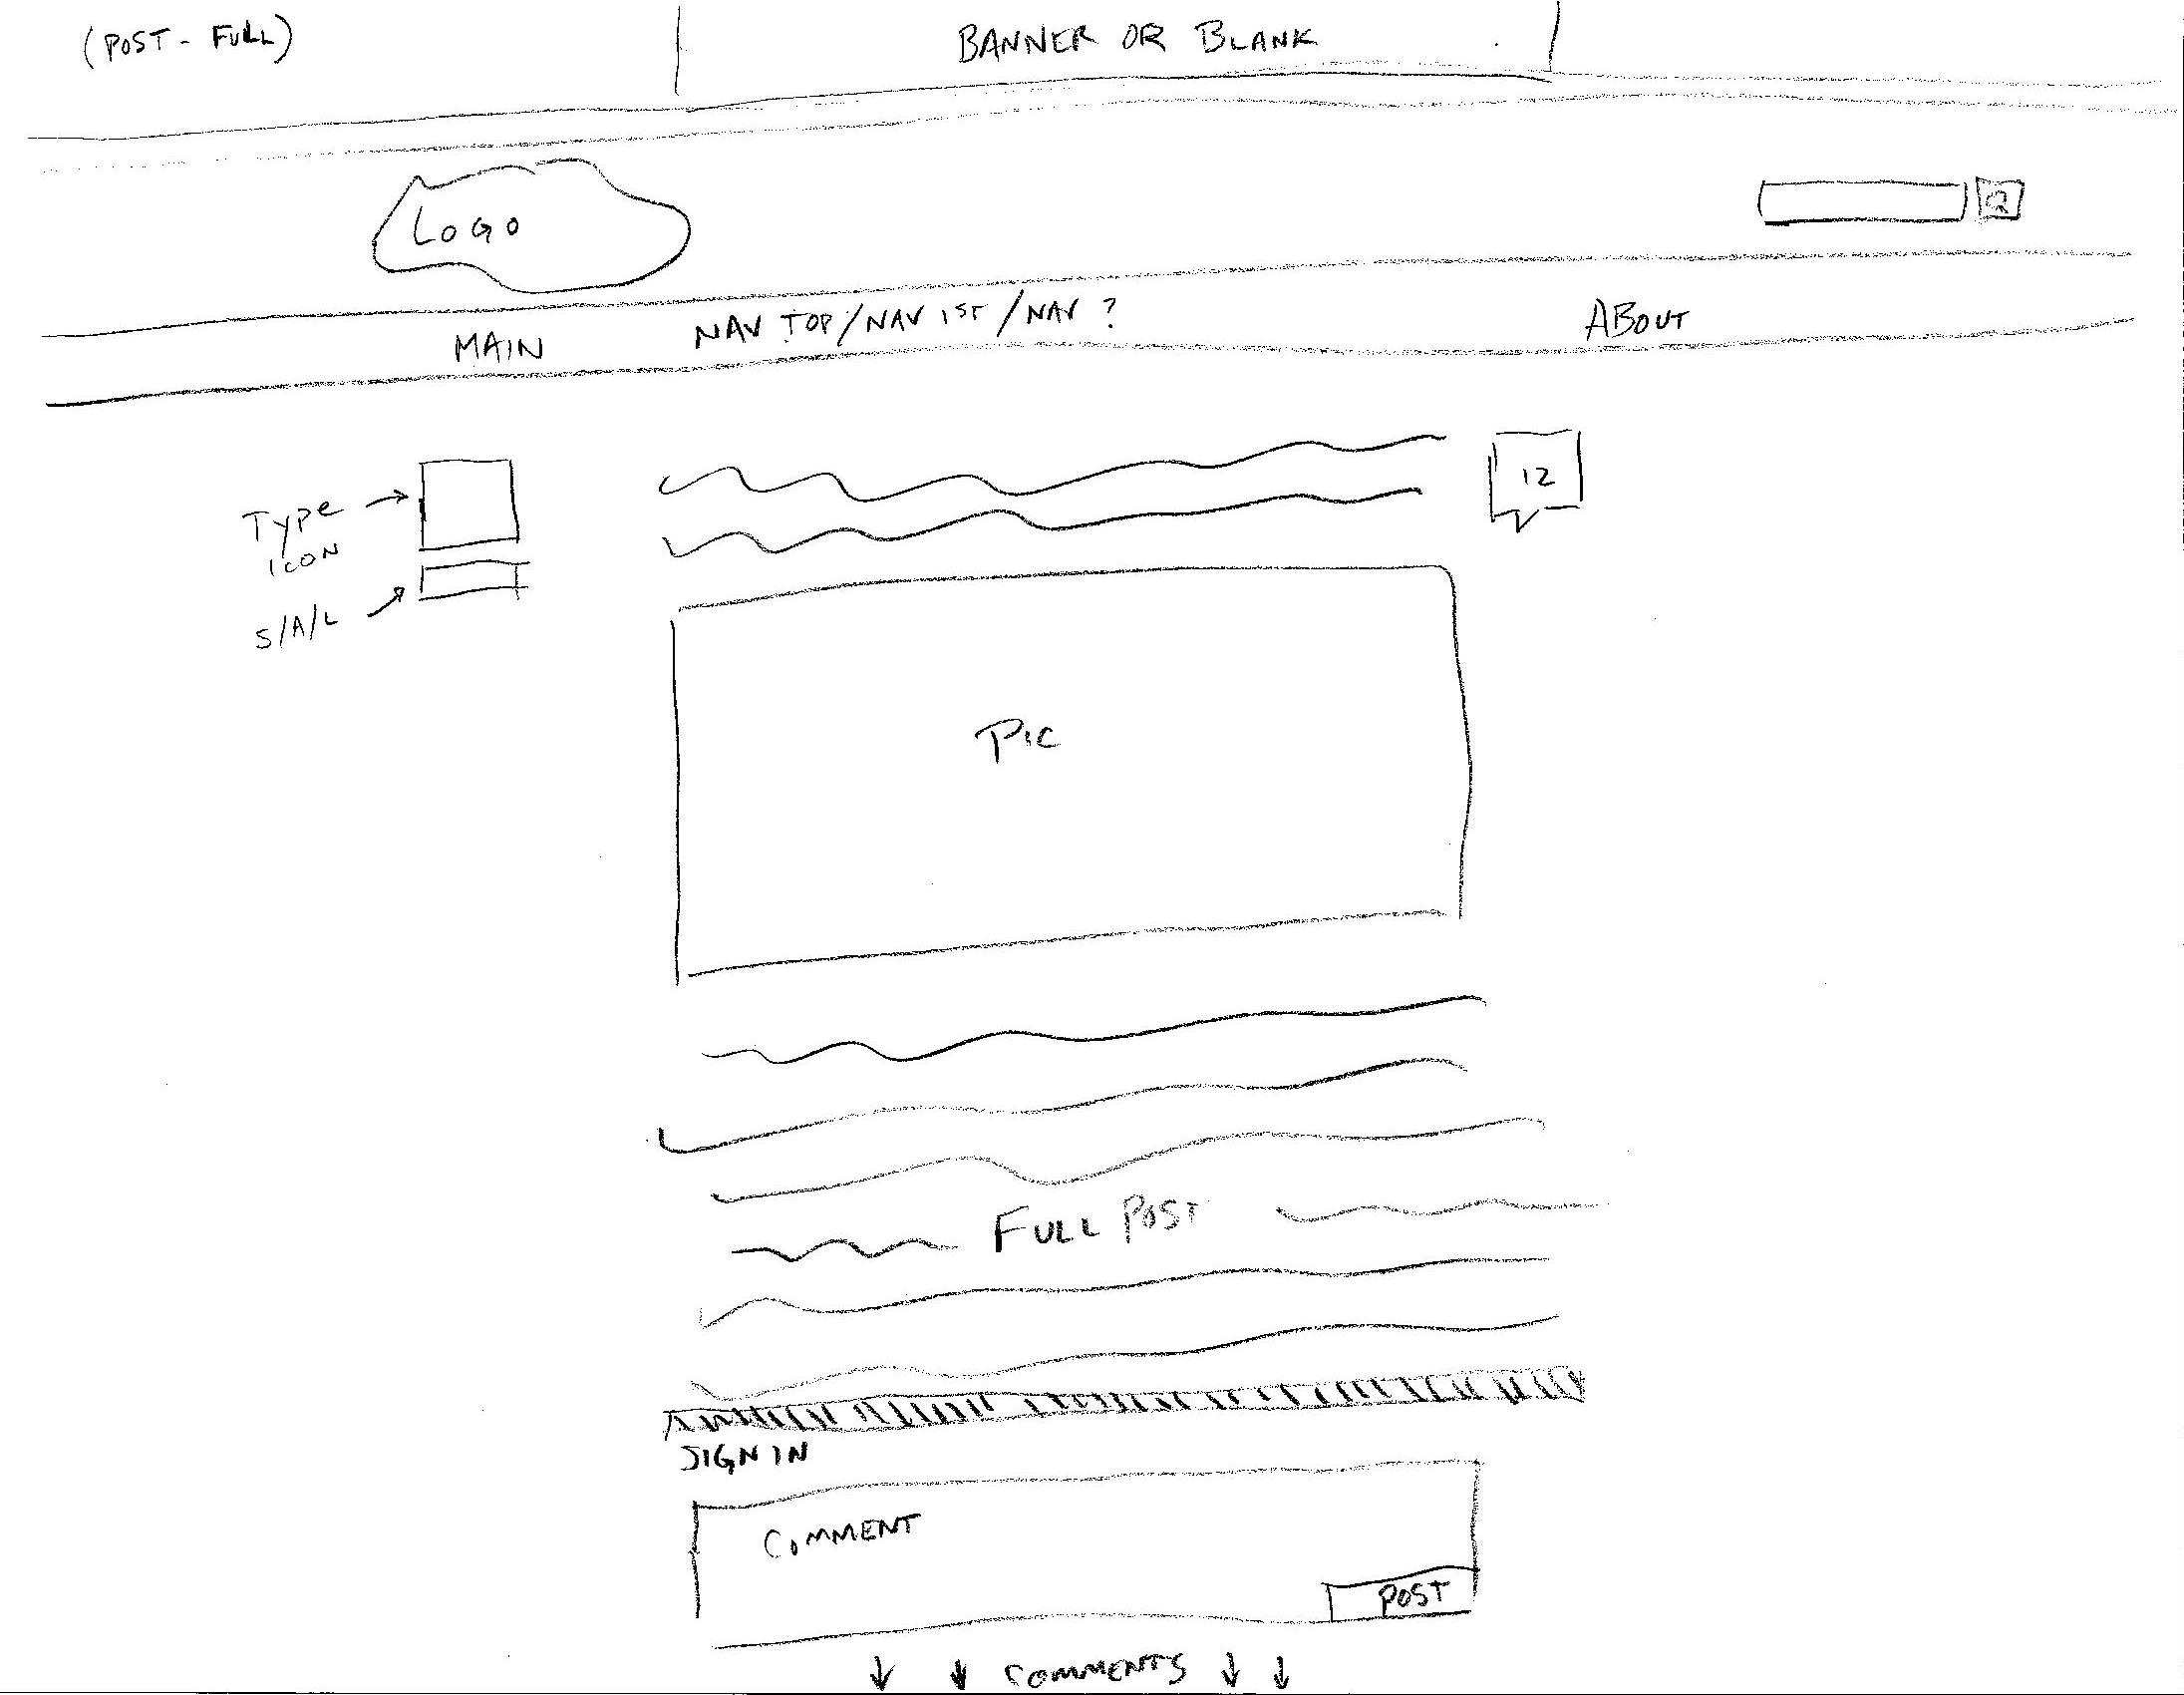 (POST - FULL)
BANNER OR BLANK
LOGO
MAIN NAV TOP/NAV 1ST/NAV ? ABOUT
12
TYPE
ICON
S/A/L
PIC
FULL POST
SIGN IN
COMMENT
POST
↓ ↓ COMMENTS ↓ ↓